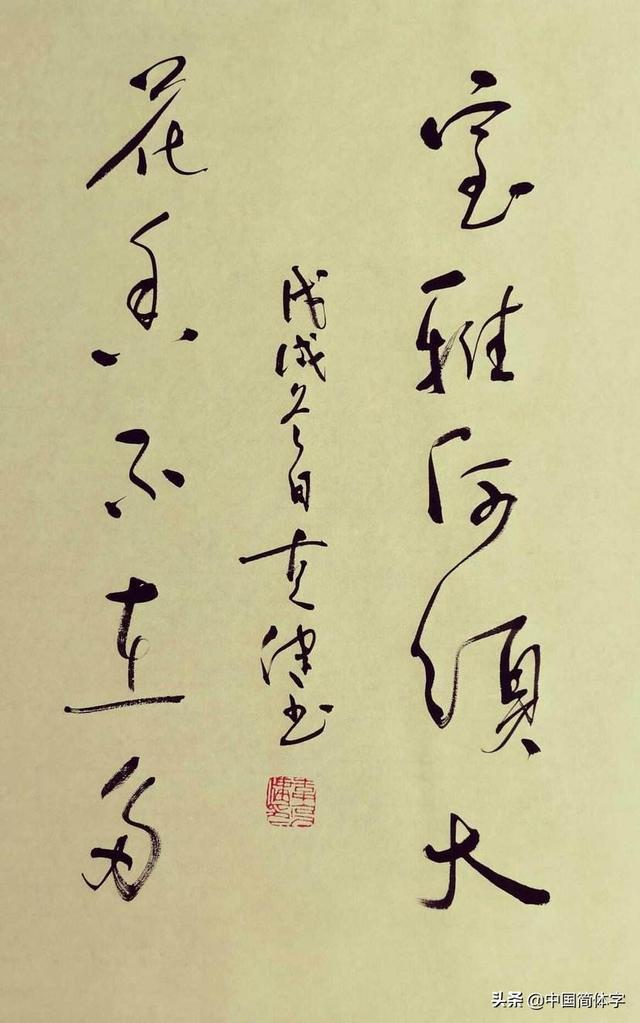 室雅何须大
花香不在多
戊戌冬日克健书
头条 @中国简体字